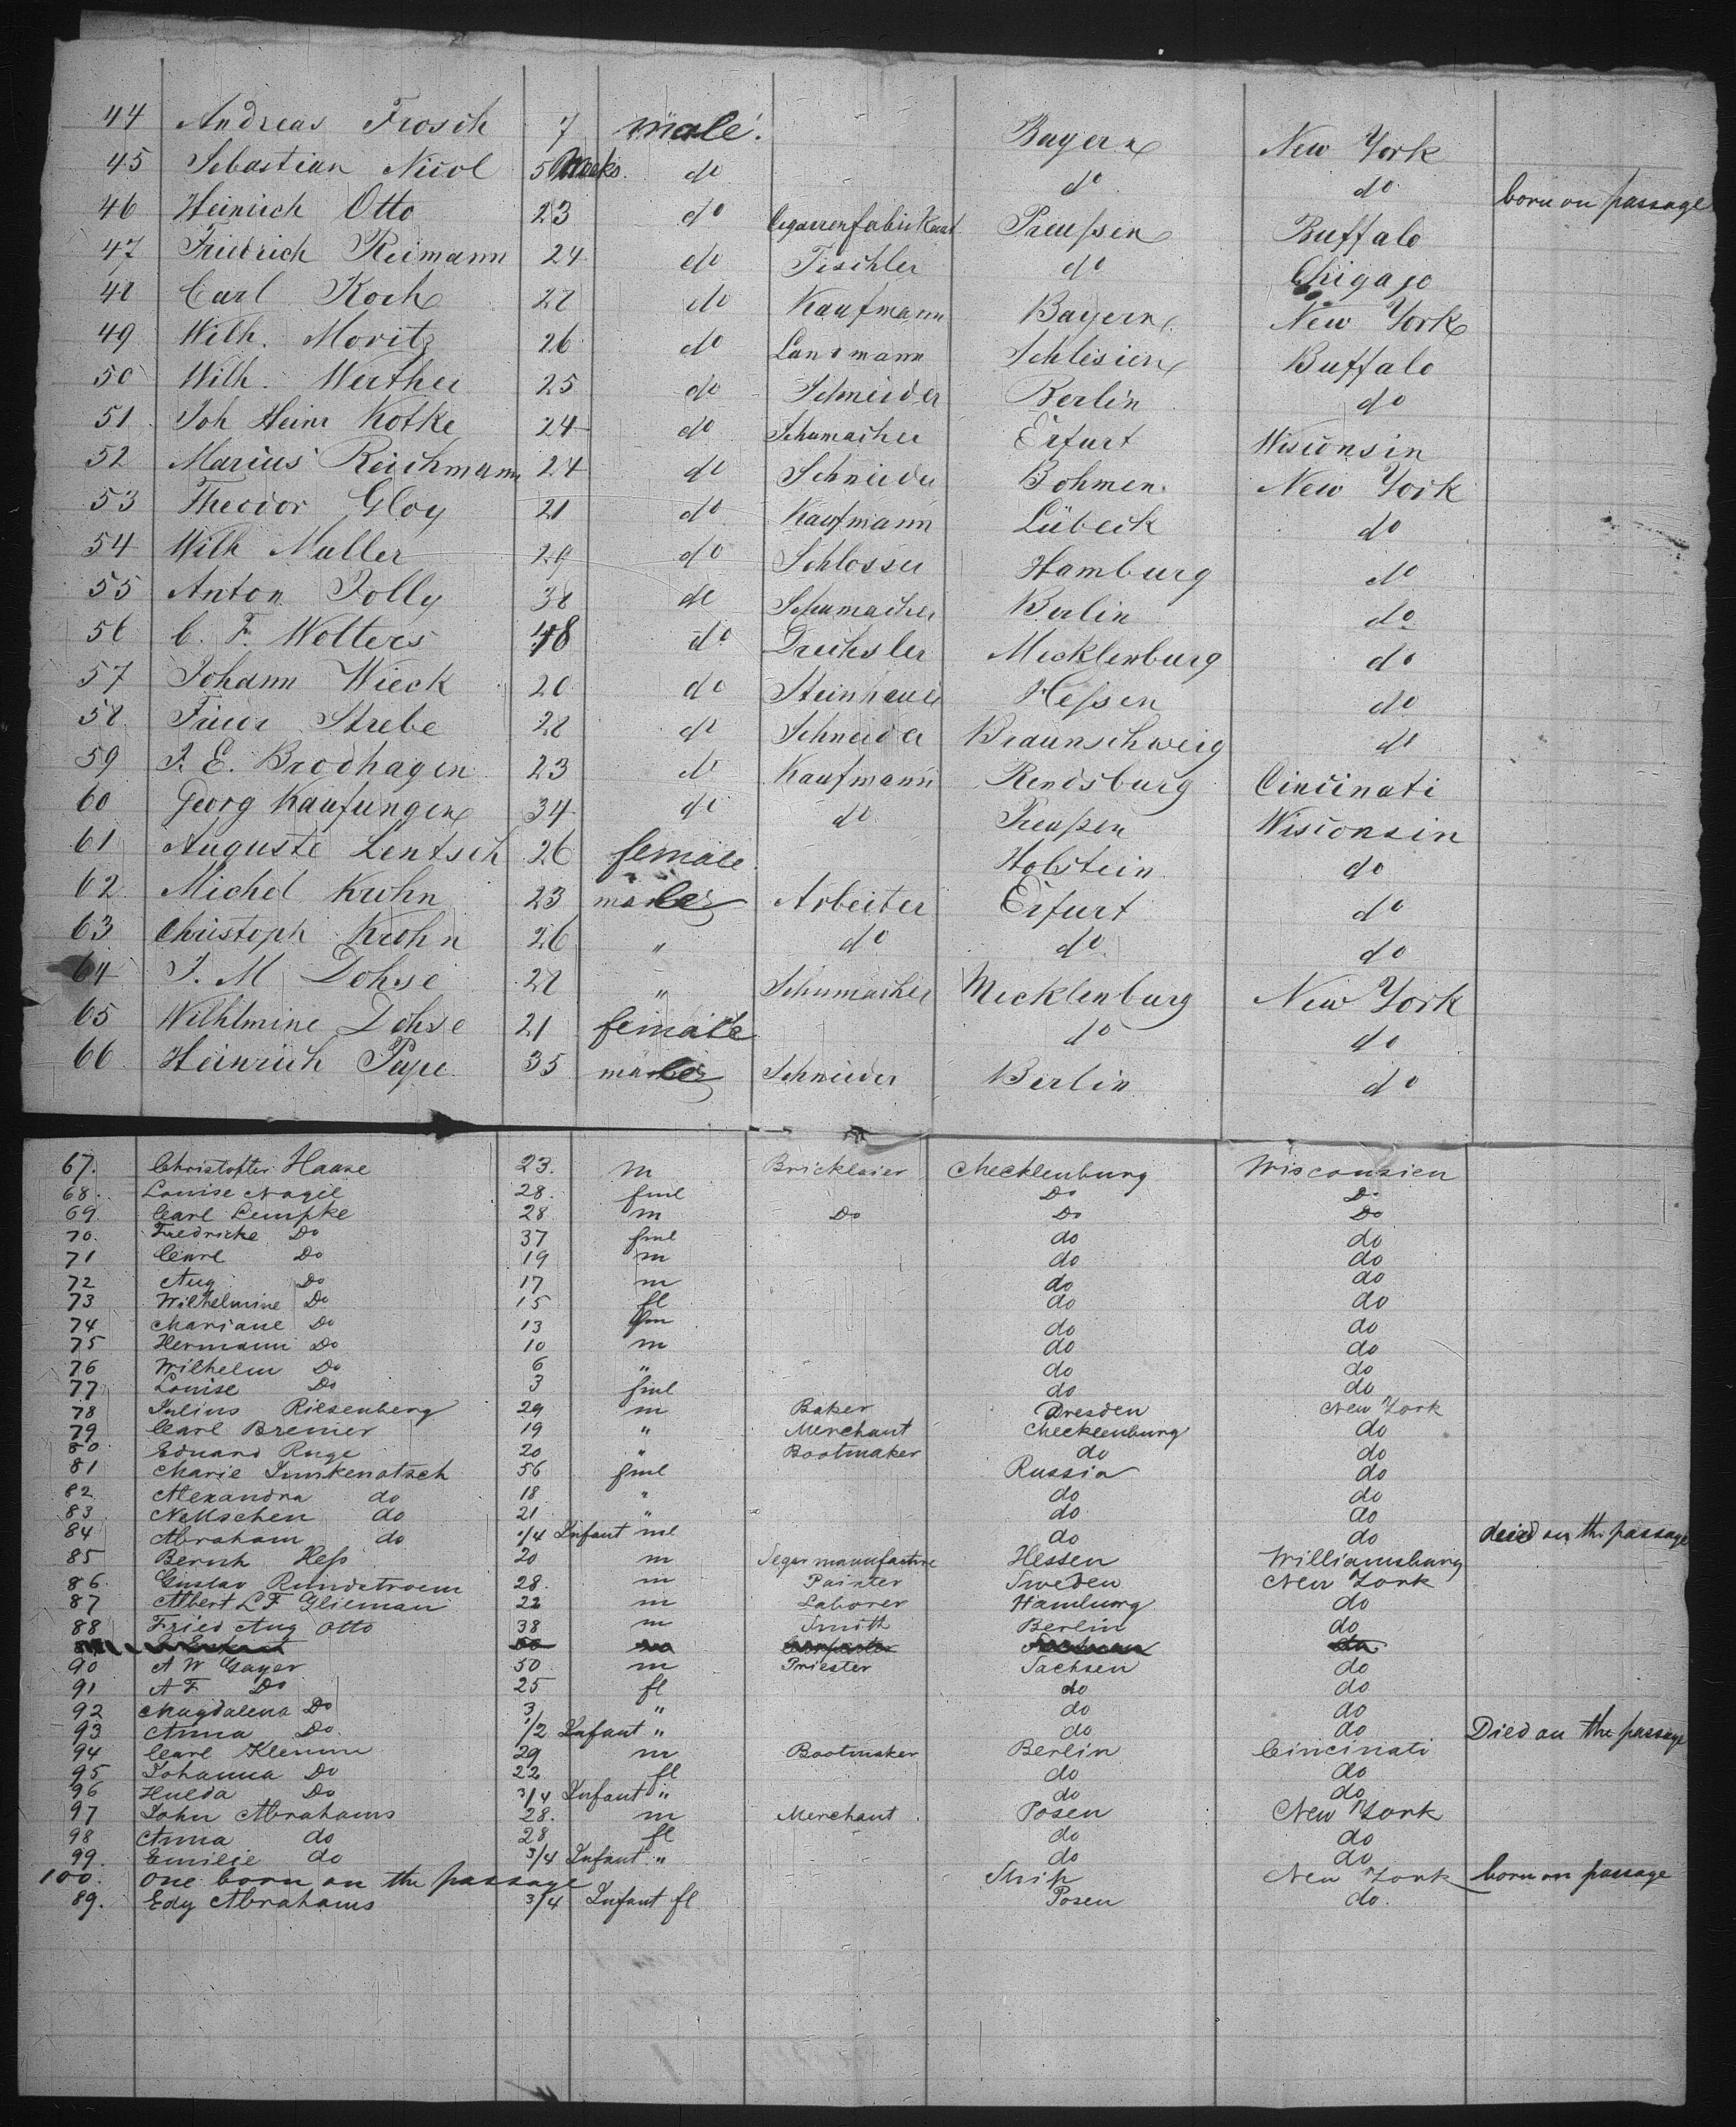 44 Andreas Frosch 7 male. Bayern New York
45 Sebastian Nicol 5 Weeks. do do do born on passage
46 Heinrich Otto 23 do Cigarrenfabrikant Preußen Buffalo
47 Friedrich Reimann 24 do Tischler do Chigago
48 Carl Koch 28 do Kaufmann Bayern New York
49 Wilh. Moritz 26 do Landmann Schlesien Buffalo
50 Wilh. Werther 25 do Schneider Berlin do
51 Joh Heinr Kotke 24 do Schumacher Erfurt Wisconsin
52 Marius Reichmann 24 do Schneider Bohmen New York
53 Theodor Gloy 21 do Kaufmann Lübeck do
54 Wilh Muller 29 do Schlosser Hamburg do
55 Anton Jolly 38 do Schumacher Berlin do
56 C. F. Wolters 48 do Drechsler Mecklenburg do
57 Johann Wieck 20 do Steinhauer Heßen do
58 Friedr Strebe 28 do Schneider Braunschweig do
59 J. E. Brodhagen 23 do Kaufmann Rendsburg Cincinati
60 Georg Kaufungen 34 do do Preußen Wisconsin
61 Auguste Lentsch 26 female Holstein do
62 Michel Krohn 23 male Arbeiter Erfurt do
63 Christoph Krohn 26 " do do do
64 J. M Dohse 28 " Schumacher Mecklenburg New York
65 Wilhlmine Dohse 21 female do do
66 Heinrich Pape 35 male Schneider Berlin do
67. Christofter Haase 23. m Bricklaier Mecklenburg Wisconsien
68. Louise Nagel 28. fml Do Do
69. Carl Lempke 28 m Do Do Do
70. Fredricke Do 37 fml do do
71 Carl Do 19 m do do
72 Aug Do 17 m do do
73 Wilhelmine Do 15 fl do do
74 Mariane Do 13 fm do do
75 Hermann Do 10 m do do
76 Wilhelm Do 6 " do do
77 Louise Do 3 fml do do
78 Julius Riesenberg 29 m Baker Dresden New York
79 Carl Bremer 19 " Merchant Mecklenburg do
80 Eduard Ruge 20 " Bootmaker do do
81 Marie Junkenatsch 56 fml Russia do
82 Alexandra do 18 " do do
83 Nettschen do 21 " do do
84 Abraham do 1/4 Infant ml do do deied on the passage
85 Bernh Heß 20 m Segar manufacture Hessen Williamsburg
86. Gustav Rundstroem 28. m Painter Sweden New York
87 Albert L F Glieman 22 m Laborer Hamburg do
88 Fried Aug Otto 38 m Smith Berlin do
90 A W Gayer 50 m Priester Sachsen do
91 A F Do 25 fl do do
92 Magdalena Do 3 " do do
93 Anna Do 1/2 Infant " do do Died on the passage
94 Carl Klemm 29 m Bootmaker Berlin Cincinati
95 Johanna Do 22 fl do do
96 Hulda Do 3/4 Infant " do do
97 John Abrahams 28. m Merchant Posen New York
98 Anna do 28 fl do do
99. Emilie do 3/4 Infant " do do
100. one born on the passage Ship New York born on passage
89. Edy Abrahams 3/4 Infant fl Posen do.